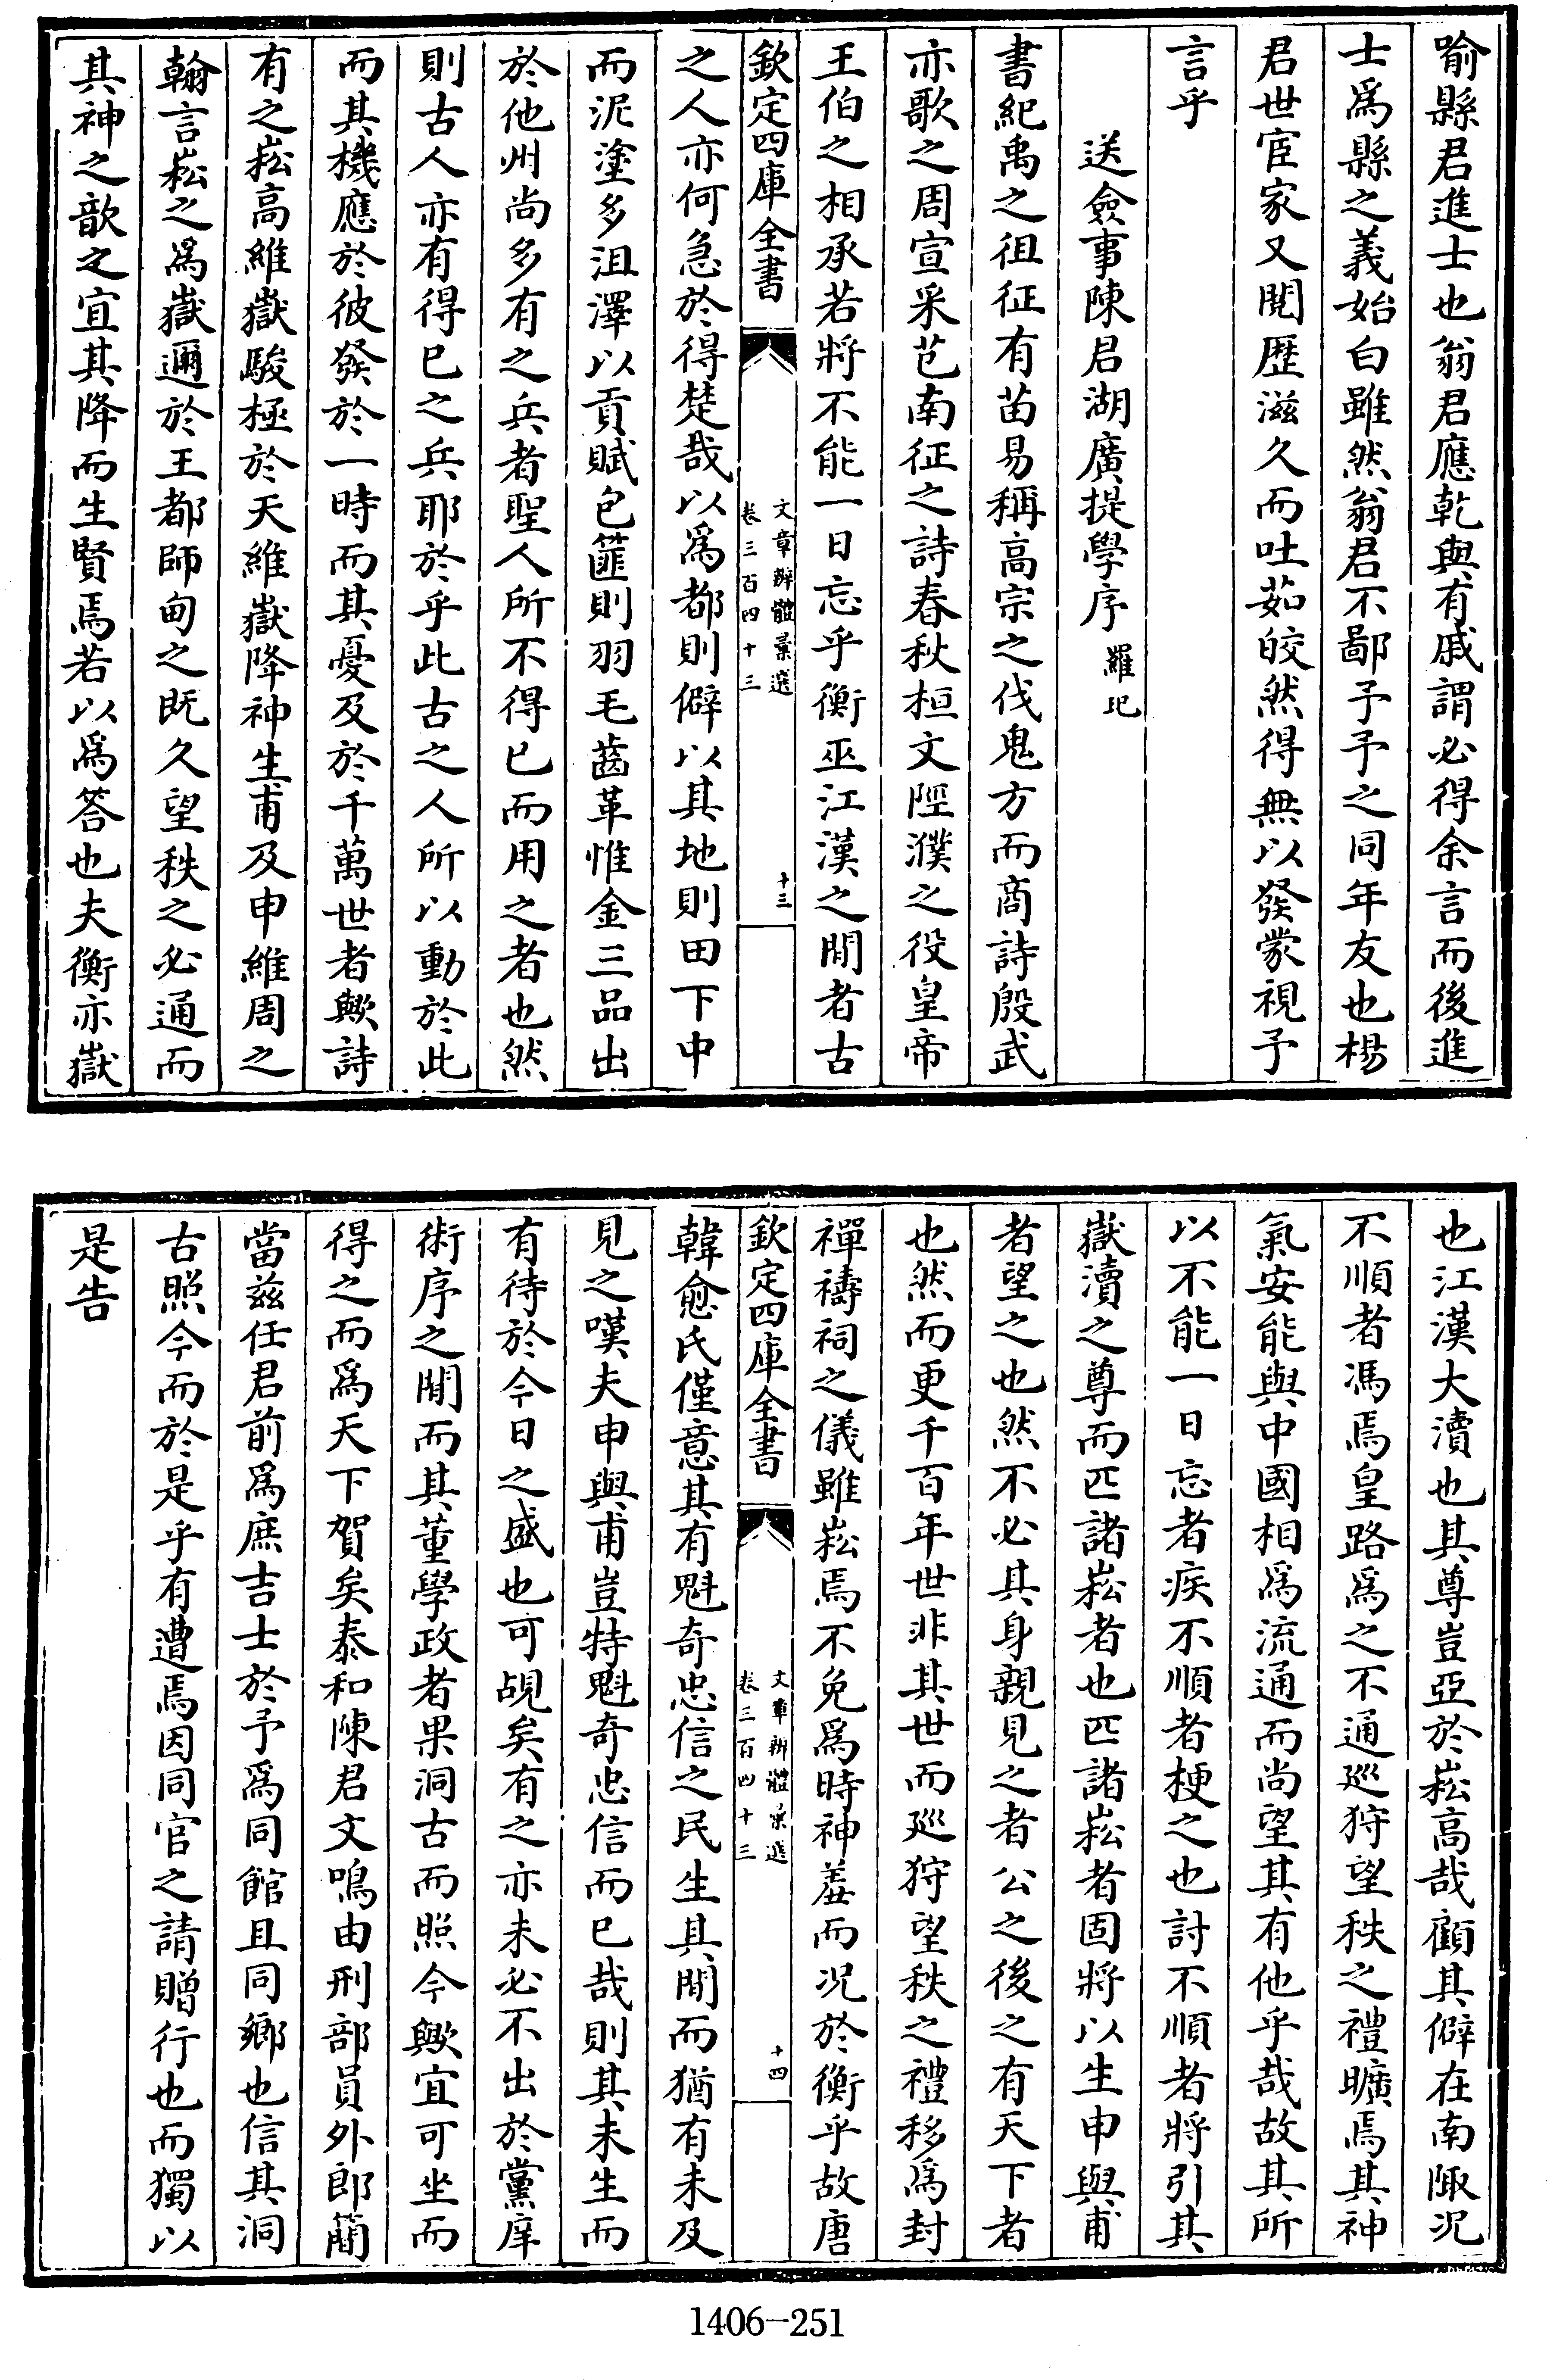 喻縣君進士也翁君應乾與有戚謂必得余言而後進
士爲縣之義始白雖然翁君不鄙予予之同年友也楊
君世宦家又閱歷滋久而吐茹皎然得無以發蒙視予
言乎
送僉事陳君湖廣提學序 羅玘
書紀禹之徂征有苗易稱高宗之伐鬼方而商詩殷武
亦歌之周宣采芑南征之詩春秋桓文陘濮之役皇帝
王伯之相承若將不能一日忘乎衡巫江漢之間者古
欽定四庫全書
文章辨體彙選
卷三百四十三
十三
之人亦何急於得楚哉以爲都則僻以其地則田下中
而泥塗多沮澤以貢賦包篚則羽毛齒革惟金三品出
於他州尚多有之兵者聖人所不得已而用之者也然
則古人亦有得已之兵耶於乎此古之人所以動於此
而其機應於彼發於一時而其憂及於千萬世者歟詩
有之崧高維嶽駿極於天維嶽降神生甫及申維周之
翰言崧之爲嶽邇於王都師甸之既久望秩之必通而
其神之歆之宜其降而生賢焉若以爲答也夫衡亦嶽
也江漢大瀆也其尊豈亞於崧高哉顧其僻在南陬況
不順者馮焉皇路爲之不通廵狩望秩之禮曠焉其神
氣安能與中國相爲流通而尚望其有他乎哉故其所
以不能一日忘者疾不順者梗之也討不順者將引其
嶽瀆之尊而匹諸崧者也匹諸崧者固將以生申與甫
者望之也然不必其身親見之者公之後之有天下者
也然而更千百年世非其世而廵狩望秩之禮移爲封
禪禱祠之儀雖崧焉不免爲時神羞而況於衡乎故唐
欽定四庫全書
文章辨體彙選
卷三百四十三
十四
韓愈氏僅意其有魁奇忠信之民生其間而猶有未及
見之嘆夫申與甫豈特魁奇忠信而已哉則其未生而
有待於今日之盛也可覘矣有之亦未必不出於黨庠
術序之間而其董學政者果洞古而照今歟宜可坐而
得之而爲天下賀矣泰和陳君文鳴由刑部員外郎簡
當兹任君前爲庶吉士於予爲同館且同鄉也信其洞
古照今而於是乎有遭焉因同官之請贈行也而獨以
是告
1406-251